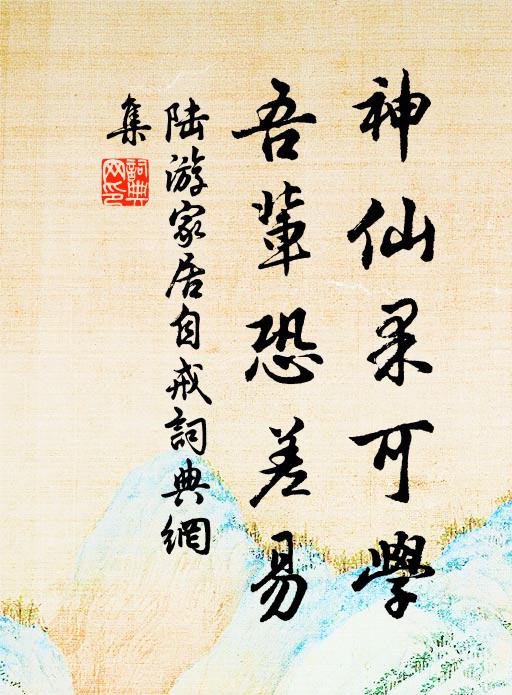 神仙果可學
吾輩恐差易
陸游家居自戒詞典網
集
詞典
网印